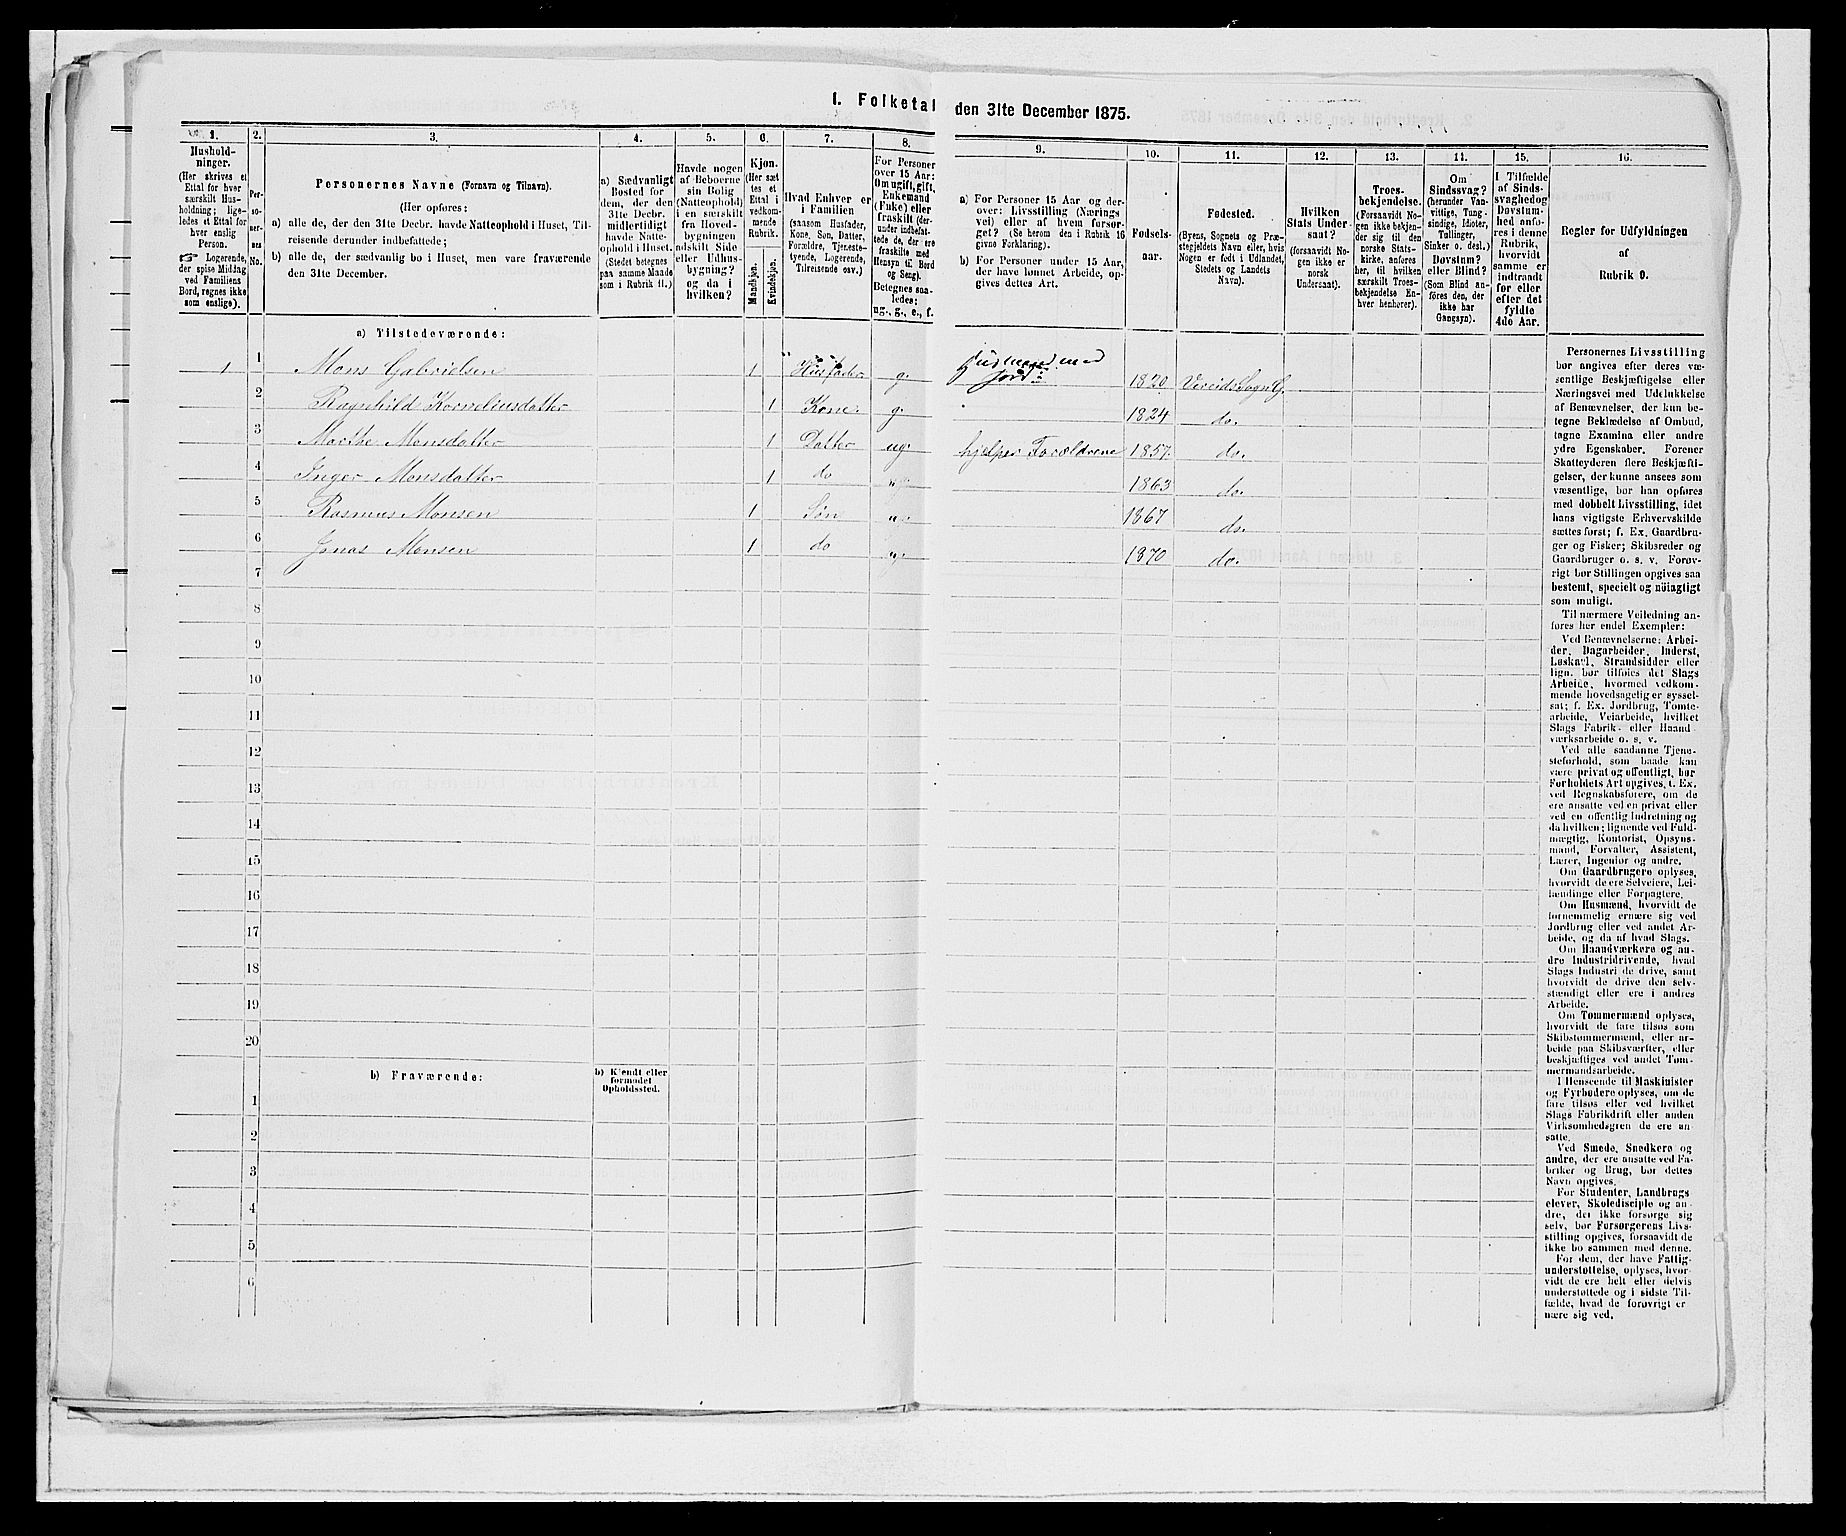 1. Folketal den 31te December 1875.
1.
2.
3.
4.
5.
6.
7.
8.
9.
10.
11.
12.
13.
14.
15.
16.
Hushold-
ninger.
(Her skrives et
Ettal for hver
særskilt Hus-
holdning; lige-
ledes et Ettal for
hver enslig
Person.
☞ Logerende,
der spise Middag
ved Familiens
Bord, regnes ikke
som enslige).
Per-
so-
ner-
nes
No.
Personernes Navne (Fornavn og Tilnavn).
(Her opføres:
a) alle de, der den 31te Decbr. havde Natteophold i Huset, Til-
reisende derunder indbefattede;
b) alle de, der sædvanlig bo i Huset, men vare fraværende
den 31te December.
a) Sædvanligt
Bosted for
dem, der den
31te Decbr.
midlertidigt
havde Natte-
ophold i Huset.
(Stedet betegnes
paa samme Maade
som i Rubrik 11.)
Havde nogen
af Beboerne
sin Bolig
(Natteophold)
i en særskilt
fra Hoved-
bygningen
adskilt Side
eller Udhus-
bygning?
og da i
hvilken?
Kjøn.
(Her sæt
tes et
Ettal i
vedkom-
mende
Rubrik.
Mandkjøn.
Kvindekjøn.
Hvad Enhver er
i Familien
(saasom Husfader,
Kone, Søn, Datter,
Forældre, Tjeneste-
tyende, Logerende,
Tilreisende osv.)
For Personer
over 15 Aar:
Om ugift, gift,
Enkemand
(Enke) eller
fraskilt (der-
under indbefat-
tede de, der ere
fraskilte med
Hensyn til Bord
og Seng).
Betegnes saa-
ledes:
ug., g., e., f.
a) For Personer 15 Aar og der-
over: Livsstilling (Nærings
vei) eller af hvem forsør-
get? (Se herom den i Rubrik 16
givne Forklaring).
b) For Personer under 15 Aar,
der have lønnet Arbeide, op-
gives dettes Art.
Fødsels-
aar.
Fødested.
(Byens, Sognets og Præ-
stegjeldets Navn eller, hvis
Nogen er født i Udlandet,
Stedets og Landets
Navn).
Hvilken
Stats Under
saat?
(forsaavidt No-
gen ikke er
norsk
Undersaat).
Troes-
bekjendelse.
(Forsaavidt No-
gen ikke bekjen-
der sig til den
norske Stats-
kirke, anføres
her, til hvilken
særskilt Troes-
bekjendelse En-
hver henhører).
Om
Sindssvag?
(herunder Van-
vittige, Tung-
sindige, Idioter,
Tullinger,
Sinker o. desl.)
Døvstum?
eller Blind?
(Som Blind an-
føres den, der
ikke har
Gangsyn).
I Tilfælde
af Sinds-
svaghed og
Døvstum-
hed anfø-
res i denne
Rubrik,
hvorvidt
samme er
indtraadt
før eller
efter det
fyldte
4de Aar.
Regler for Udfyldningen
af
Rubrik 9.
a) Tilstedeværende:
1 1 Mons Gabrielsen 1 Husfader g. Husmand med Jord 1820 Vereids Sogn G.
2 Ragnhild Korneliusdatter 1 Kone g. 1824 do.
3 Marthe Monsdatter 1 Datter ug. hjelper Forældrene 1857 do.
4 Inger Monsdatter 1 do ug. 1863 do.
5 Rasmus Monsen 1 Søn ug. 1867 do.
6 Jonas Monsen 1 do ug. 1870 do.
7
8
9
10
11
12
13
14
15
16
17
18
19
20
b) Fraværende:
b) Kjendt eller
formodet
Opholdssted.
1
2
3
4
5
6
Personernes Livsstilling
bør angives efter deres væ-
sentlige Beskjæftigelse eller
Næringsvei med Udelukkelse
af Benævnelser, der kun be-
tegne Beklædelse af Ombud,
tagne Examina eller andre
ydre Egenskaber. Forener
Skatteyderen flere Beskjæfti-
gelser, der kunne ansees som
væsentlige, bør han opføres
med dobbelt Livsstilling, idet
hans vigtigste Erhvervskilde
sættes først; f. Ex. Gaardbru-
ger og Fisker; Skibsreder og
Gaardbruger o. s. v. Forøv-
rigt bør Stillingen opgives saa
bestemt, specielt og nöiagtigt
som muligt.
Til nærmere Veiledning an-
føres her endel Exempler:
Ved Benævnelserne: Arbei-
der, Dagarbeider, Inderst,
Løskarl, Strandsidder eller
lign. bør tilføies det Slags
Arbeide, hvormed vedkom-
mende hovedsagelig er syssel-
sat; f. Ex. Jordbrug, Tomte-
arbeide, Veiarbeide, hvilket
Slags Fabrik- eller Haand-
værksarbeide o. s. v.
Ved alle saadanne Tjene-
steforhold, som baade kan
være privat og offentligt, bør
Forholdets Art opgives, f. Ex.
ved Regnskabsførere, om de
ere ansatte ved en privat eller
ved en offentlig Indretning og
da hvilken; lignende ved Fuld-
mægtig, Kontorist, Opsyns-
mand, Forvalter, Assistent,
Lærer, Ingeniør og andre.
Om Gaardbrugere oplyses,
hvorvidt de ere Selveiere, Lei-
lændinge eller Forpagtere.
Om Husmænd, hvorvidt de
fornemmelig ernære sig ved
Jordbrug eller ved andet Ar-
beide, og da af hvad Slags.
Om Haandværkere og an-
dre Industridrivende, hvad
Slags Industri de drive, samt
hvorvidt de drive den selv-
stændigt eller ere i andres
Arbeide.
Om Tømmermænd oplyses,
hvorvidt de fare tilsøs som
Skibstømmermænd, eller ar-
beide paa Skibsværfter, eller
beskjæftiges ved andet Tøm-
mermandsarbeide.
I Henseende til Maskinister
og Fyrbødere oplyses, om de
fare tilsøs eller ved hvilket
Slags Fabrikdrift eller anden
Virksomhedsgren de ere an-
satte.
Ved Smede, Snedkere og
andre, der ere ansatte ved Fa-
briker og Brug, bør dettes
Navn opgives.
For Studenter, Landbrugs
elever, Skoledisciple og an-
dre, der ikke forsørge sig
selv, bør Forsørgerens Livs-
stilling opgives, forsaavidt de
ikke bo sammen med denne.
For dem, der have Fattig-
understøttelse, oplyses, hvor-
vidt de ere helt eller delvis
understøttede og i sidste Til-
fælde, hvad de forøvrigt er
nære sig ved.